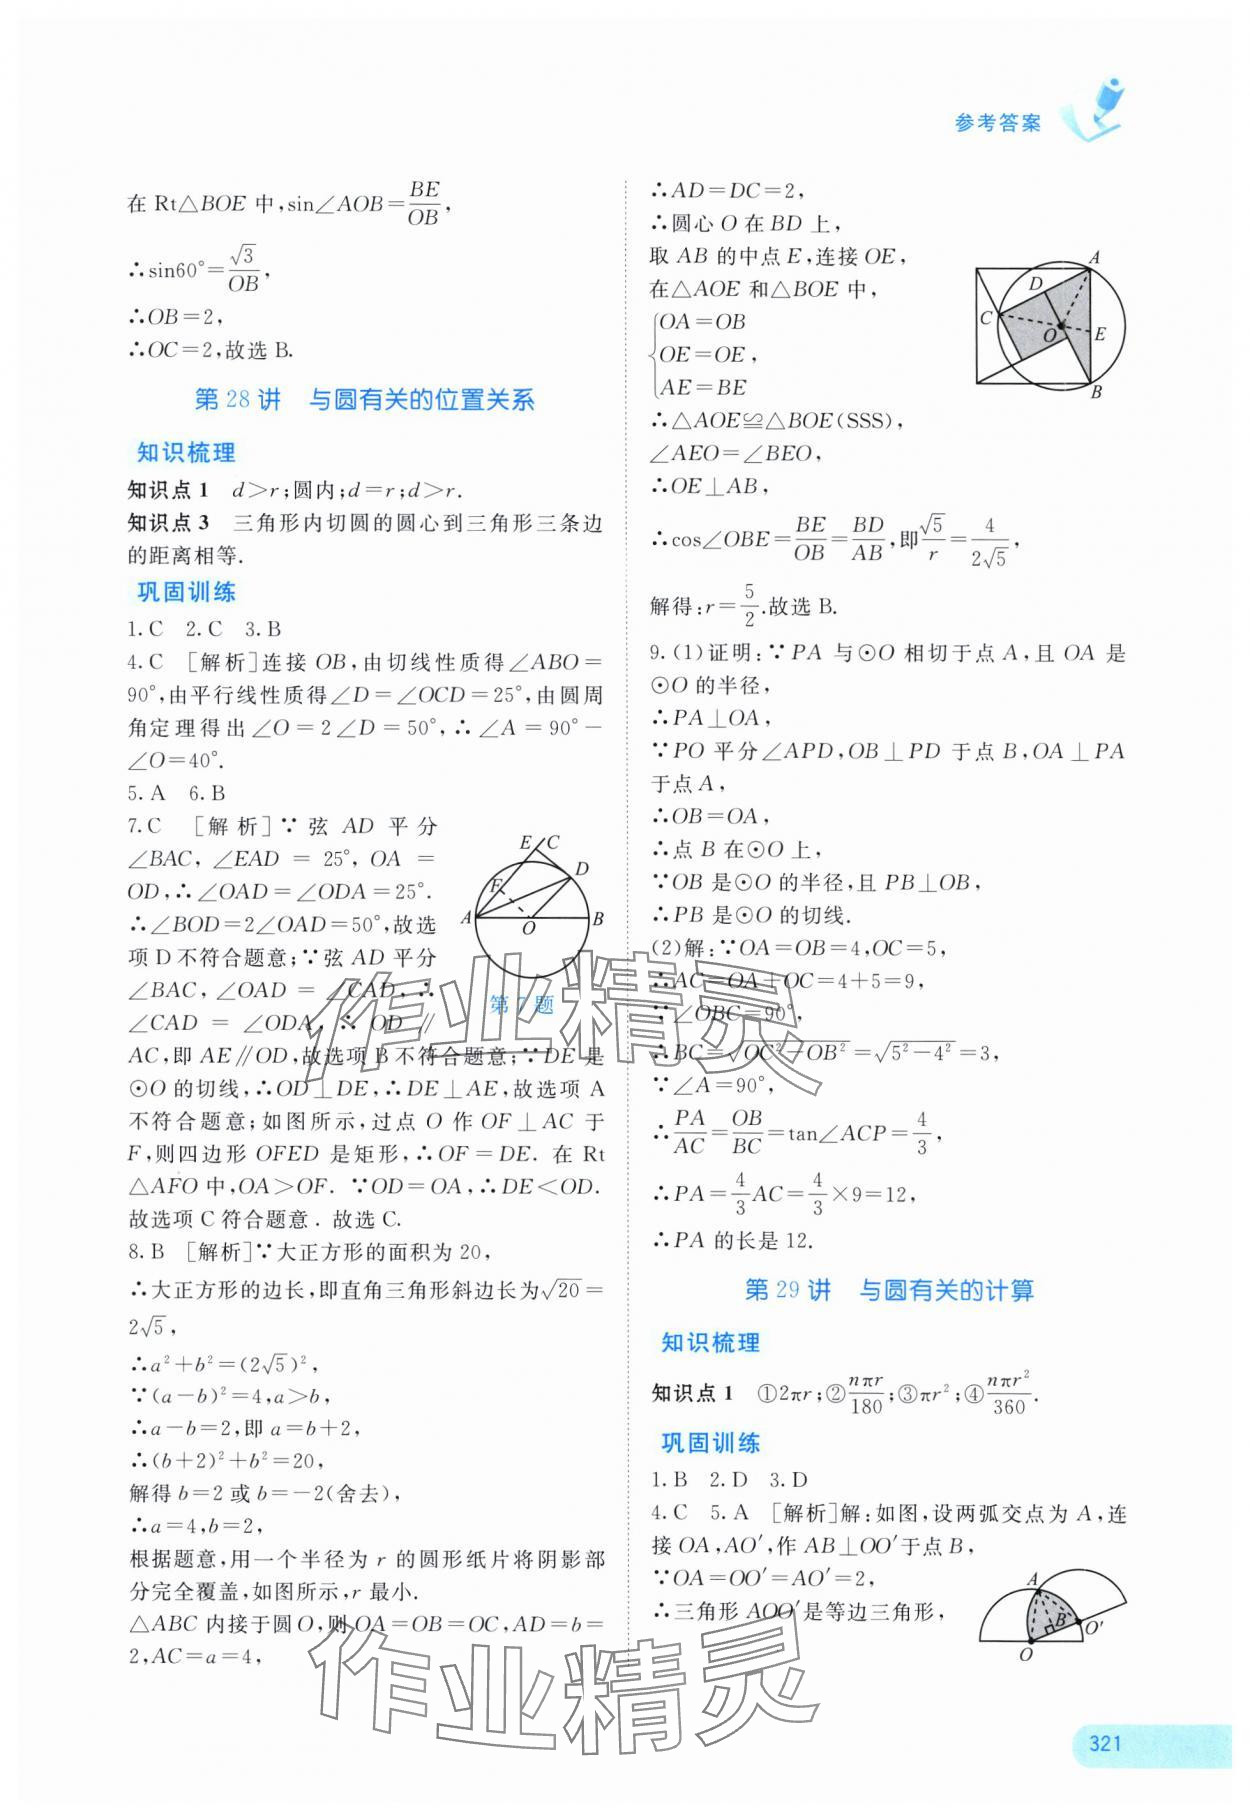 参考答案
在 Rt△BOE 中,sin∠AOB=BE/OB,
∴sin60°=√3/OB,
∴OB=2,
∴OC=2,故选 B.
第 28 讲 与圆有关的位置关系
知识梳理
知识点 1 d>r;圆内;d=r;d>r.
知识点 3 三角形内切圆的圆心到三角形三条边
的距离相等.
巩固训练
1.C 2.C 3.B
4.C [解析]连接 OB,由切线性质得∠ABO=
90°,由平行线性质得∠D=∠OCD=25°,由圆周
角定理得出∠O=2∠D=50°,∴∠A=90°-
∠O=40°.
5.A 6.B
7.C [解析]∵弦 AD 平分
∠BAC,∠EAD=25°,OA=
OD,∴∠OAD=∠ODA=25°.
∴∠BOD=2∠OAD=50°,故选
项 D 不符合题意;∵弦 AD 平分
∠BAC,∠OAD=∠CAD,∴
∠CAD=∠ODA,∴OD∥
AC,即 AE∥OD,故选项 B 不符合题意;∵DE 是
⊙O 的切线,∴OD⊥DE,∴DE⊥AE,故选项 A
不符合题意;如图所示,过点 O 作 OF⊥AC 于
F,则四边形 OFED 是矩形,∴OF=DE. 在 Rt
△AFO 中,OA>OF. ∵OD=OA,∴DE<OD.
故选项 C 符合题意. 故选 C.
E C
D
F
A O B
第 7 题
8.B [解析]∵大正方形的面积为 20,
∴大正方形的边长,即直角三角形斜边长为√20=
2√5,
∴a²+b²=(2√5)²,
∵(a-b)²=4,a>b,
∴a-b=2,即 a=b+2,
∴(b+2)²+b²=20,
解得 b=2 或 b=-2(舍去),
∴a=4,b=2,
根据题意,用一个半径为 r 的圆形纸片将阴影部
分完全覆盖,如图所示,r 最小.
△ABC 内接于圆 O,则 OA=OB=OC,AD=b=
2,AC=a=4,
∴AD=DC=2,
∴圆心 O 在 BD 上,
取 AB 的中点 E,连接 OE,
在△AOE 和△BOE 中,
{OA=OB
OE=OE,
AE=BE
∴△AOE≌△BOE(SSS),
∠AEO=∠BEO,
∴OE⊥AB,
∴cos∠OBE=BE/OB=BD/AB,即√5/r=4/2√5,
解得:r=5/2.故选 B.
A
D
C
O E
B
9.(1)证明:∵PA 与⊙O 相切于点 A,且 OA 是
⊙O 的半径,
∴PA⊥OA,
∵PO 平分∠APD,OB⊥PD 于点 B,OA⊥PA
于点 A,
∴OB=OA,
∴点 B 在⊙O 上,
∵OB 是⊙O 的半径,且 PB⊥OB,
∴PB 是⊙O 的切线.
(2)解:∵OA=OB=4,OC=5,
∴AC=OA+OC=4+5=9,
∵∠OBC=90°,
∴BC=√OC²-OB²=√5²-4²=3,
∵∠A=90°,
∴PA/AC=OB/BC=tan∠ACP=4/3,
∴PA=4/3AC=4/3×9=12,
∴PA 的长是 12.
第 29 讲 与圆有关的计算
知识梳理
知识点 1 ①2πr;②nπr/180;③πr²;④nπr²/360.
巩固训练
1.B 2.D 3.D
4.C 5.A [解析]解:如图,设两弧交点为 A,连
接 OA,AO′,作 AB⊥OO′于点 B,
∵OA=OO′=AO′=2,
∴三角形 AOO′是等边三角形,
A
B
O′
O
作业精灵
作业精灵
321